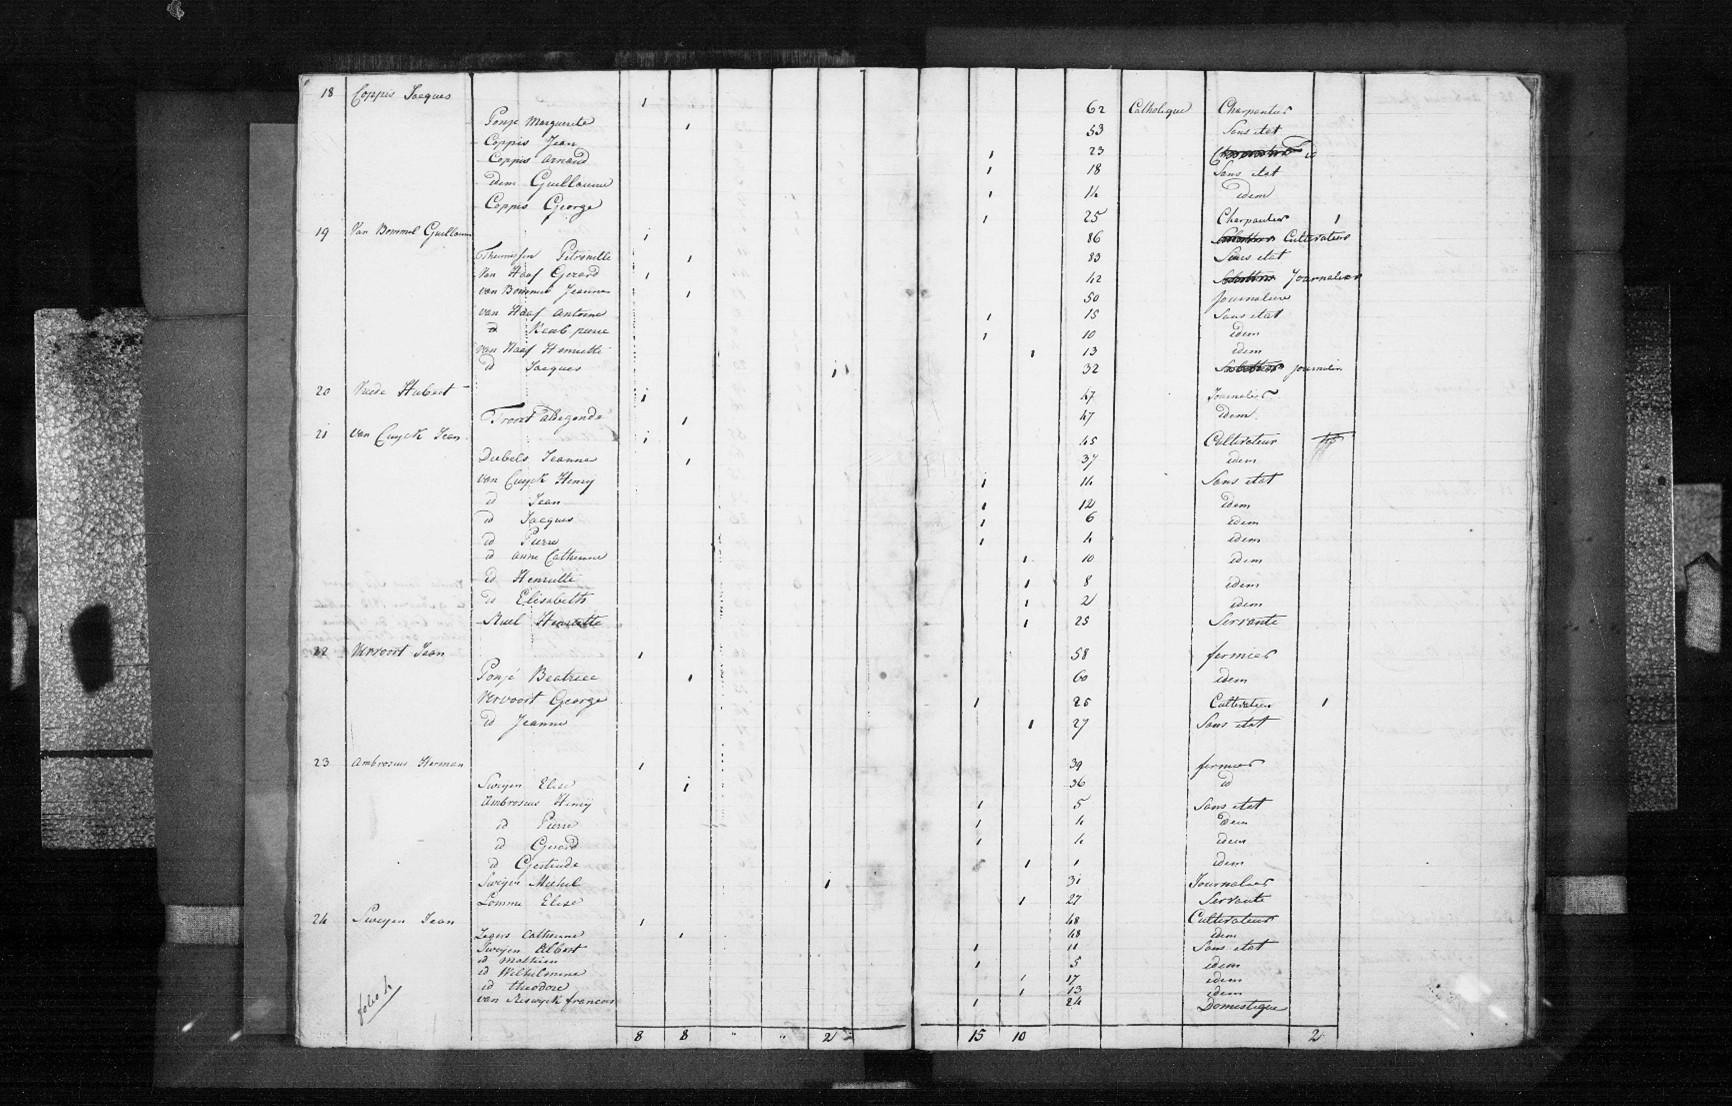 18 Coppis Jacques 1 62 Catholique Charpentier
Ponjé Marguerite 1 53 Sans etat
Coppis Jean 1 23 id
Coppis Arnaud 1 18 Sans etat
idem Guillaume 1 14 idem
Coppis George 1 25 Charpentier 1
19 Van Bommel Guillaume 1 86 Cultivateur
Petronille 1 83 Sans etat
Van Haaf Gerard 1 42 Journalier
van Bommel Jeanne 1 50 Journaliere
van Haaf Antoine 1 15 Sans etat
id pierre 1 10 idem
van Haaf Henriette 1 13 idem
id Jacques 1 32 journalier
20 Hubert 1 47 Journalier
Troost aldegonde 1 47 idem
21 van Cuyck Jean 1 45 Cultivateur
Deebels Jeanne 1 37 idem
van Cuyck Henry 1 14 Sans etat
id Jean 1 12 idem
id Jacques 1 6 idem
id Pierre 1 4 idem
id anne Catherine 1 10 idem
id Henriette 1 8 idem
id Elisabeth 1 2 idem
Henriette 1 25 Servante
22 Vervoort Jean 1 58 fermier
Ponjé Beatrice 1 60 idem
Vervoort George 1 25 Cultivateur 1
id Jeanne 1 27 Sans etat
23 Ambrosius Herman 1 39 fermier
Sweyen Elise 1 36 id
Ambrosius Henry 1 5 Sans etat
id Pierre 1 4 idem
id Gerard 1 4 idem
id Gertrude 1 1 idem
Sweyen Michel 1 31 Journalier
Lomme Elise 1 27 Servante
24 Sweyen Jean 1 48 Cultivateur
Zegers Catherine 1 48 idem
Sweyen Albert 1 11 Sans etat
id Mathieu 1 5 idem
id Wilhelmine 1 17 idem
id theodore 1 13 idem
van Rieswyck francois 1 24 Domestique
folio 4
8 8 " " 2 15 10 2